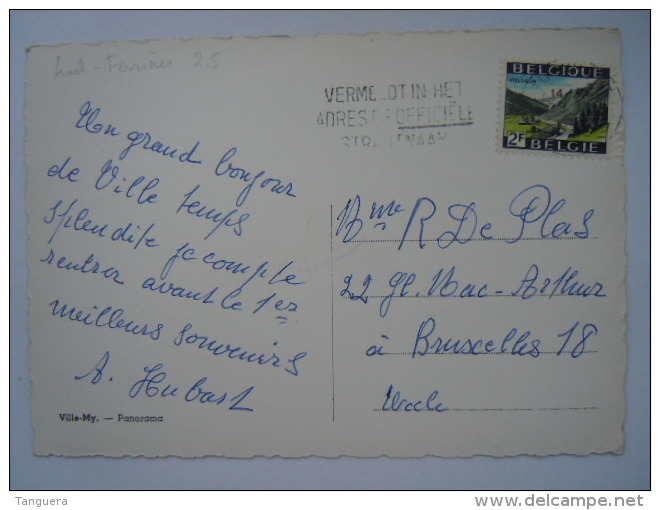 2.5
VERME OT IN HET
ADRES OFFICIËLE
BELGIQUE
VIELSALM
14
2F BELGIE
Un grand bonjour
de Ville temps
splendide je compte
rentrer avant le 1er
meilleurs souvenirs
A. Hubart
Mme R De Plas
22 Gl. Mac-Arthur
à Bruxelles 18
Uccle
Ville-My. — Panorama
Tanguera
www.delcampe.net